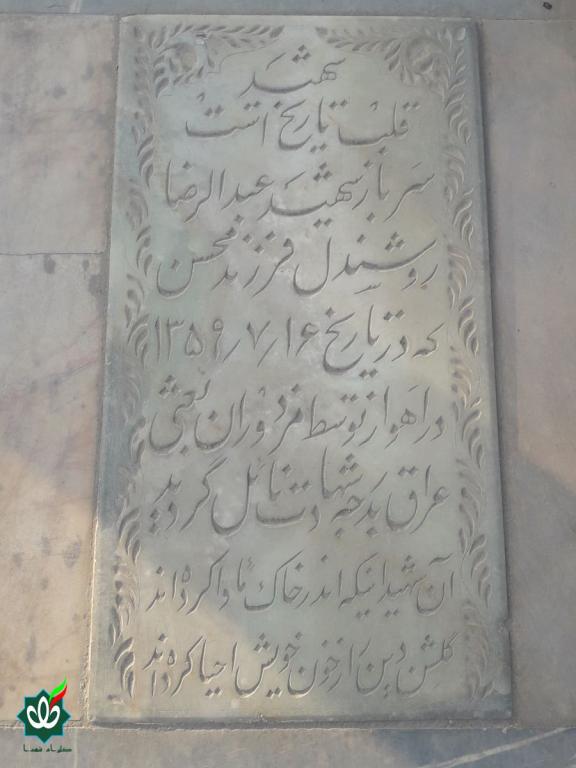 شهید
قلب تاریخ است
سرباز شهید عبدالرضا
روشندل فرزند محسن
که در تاریخ ۱۳۵۹/۷/۱۶
در اهواز توسط مزدوران بعثی
عراق بدرجه شهادت نائل گردید
آن شهیدانیکه اندر خاک ماوا کرده اند
گلشن دین از خون خویش احیا کرده اند